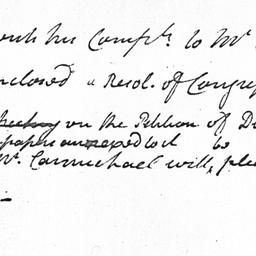 his Compts. to Mr
nclosed a Resol. of Congre
on the Petition of D
papers annexed to it to
Mr. Carmichael will, ple